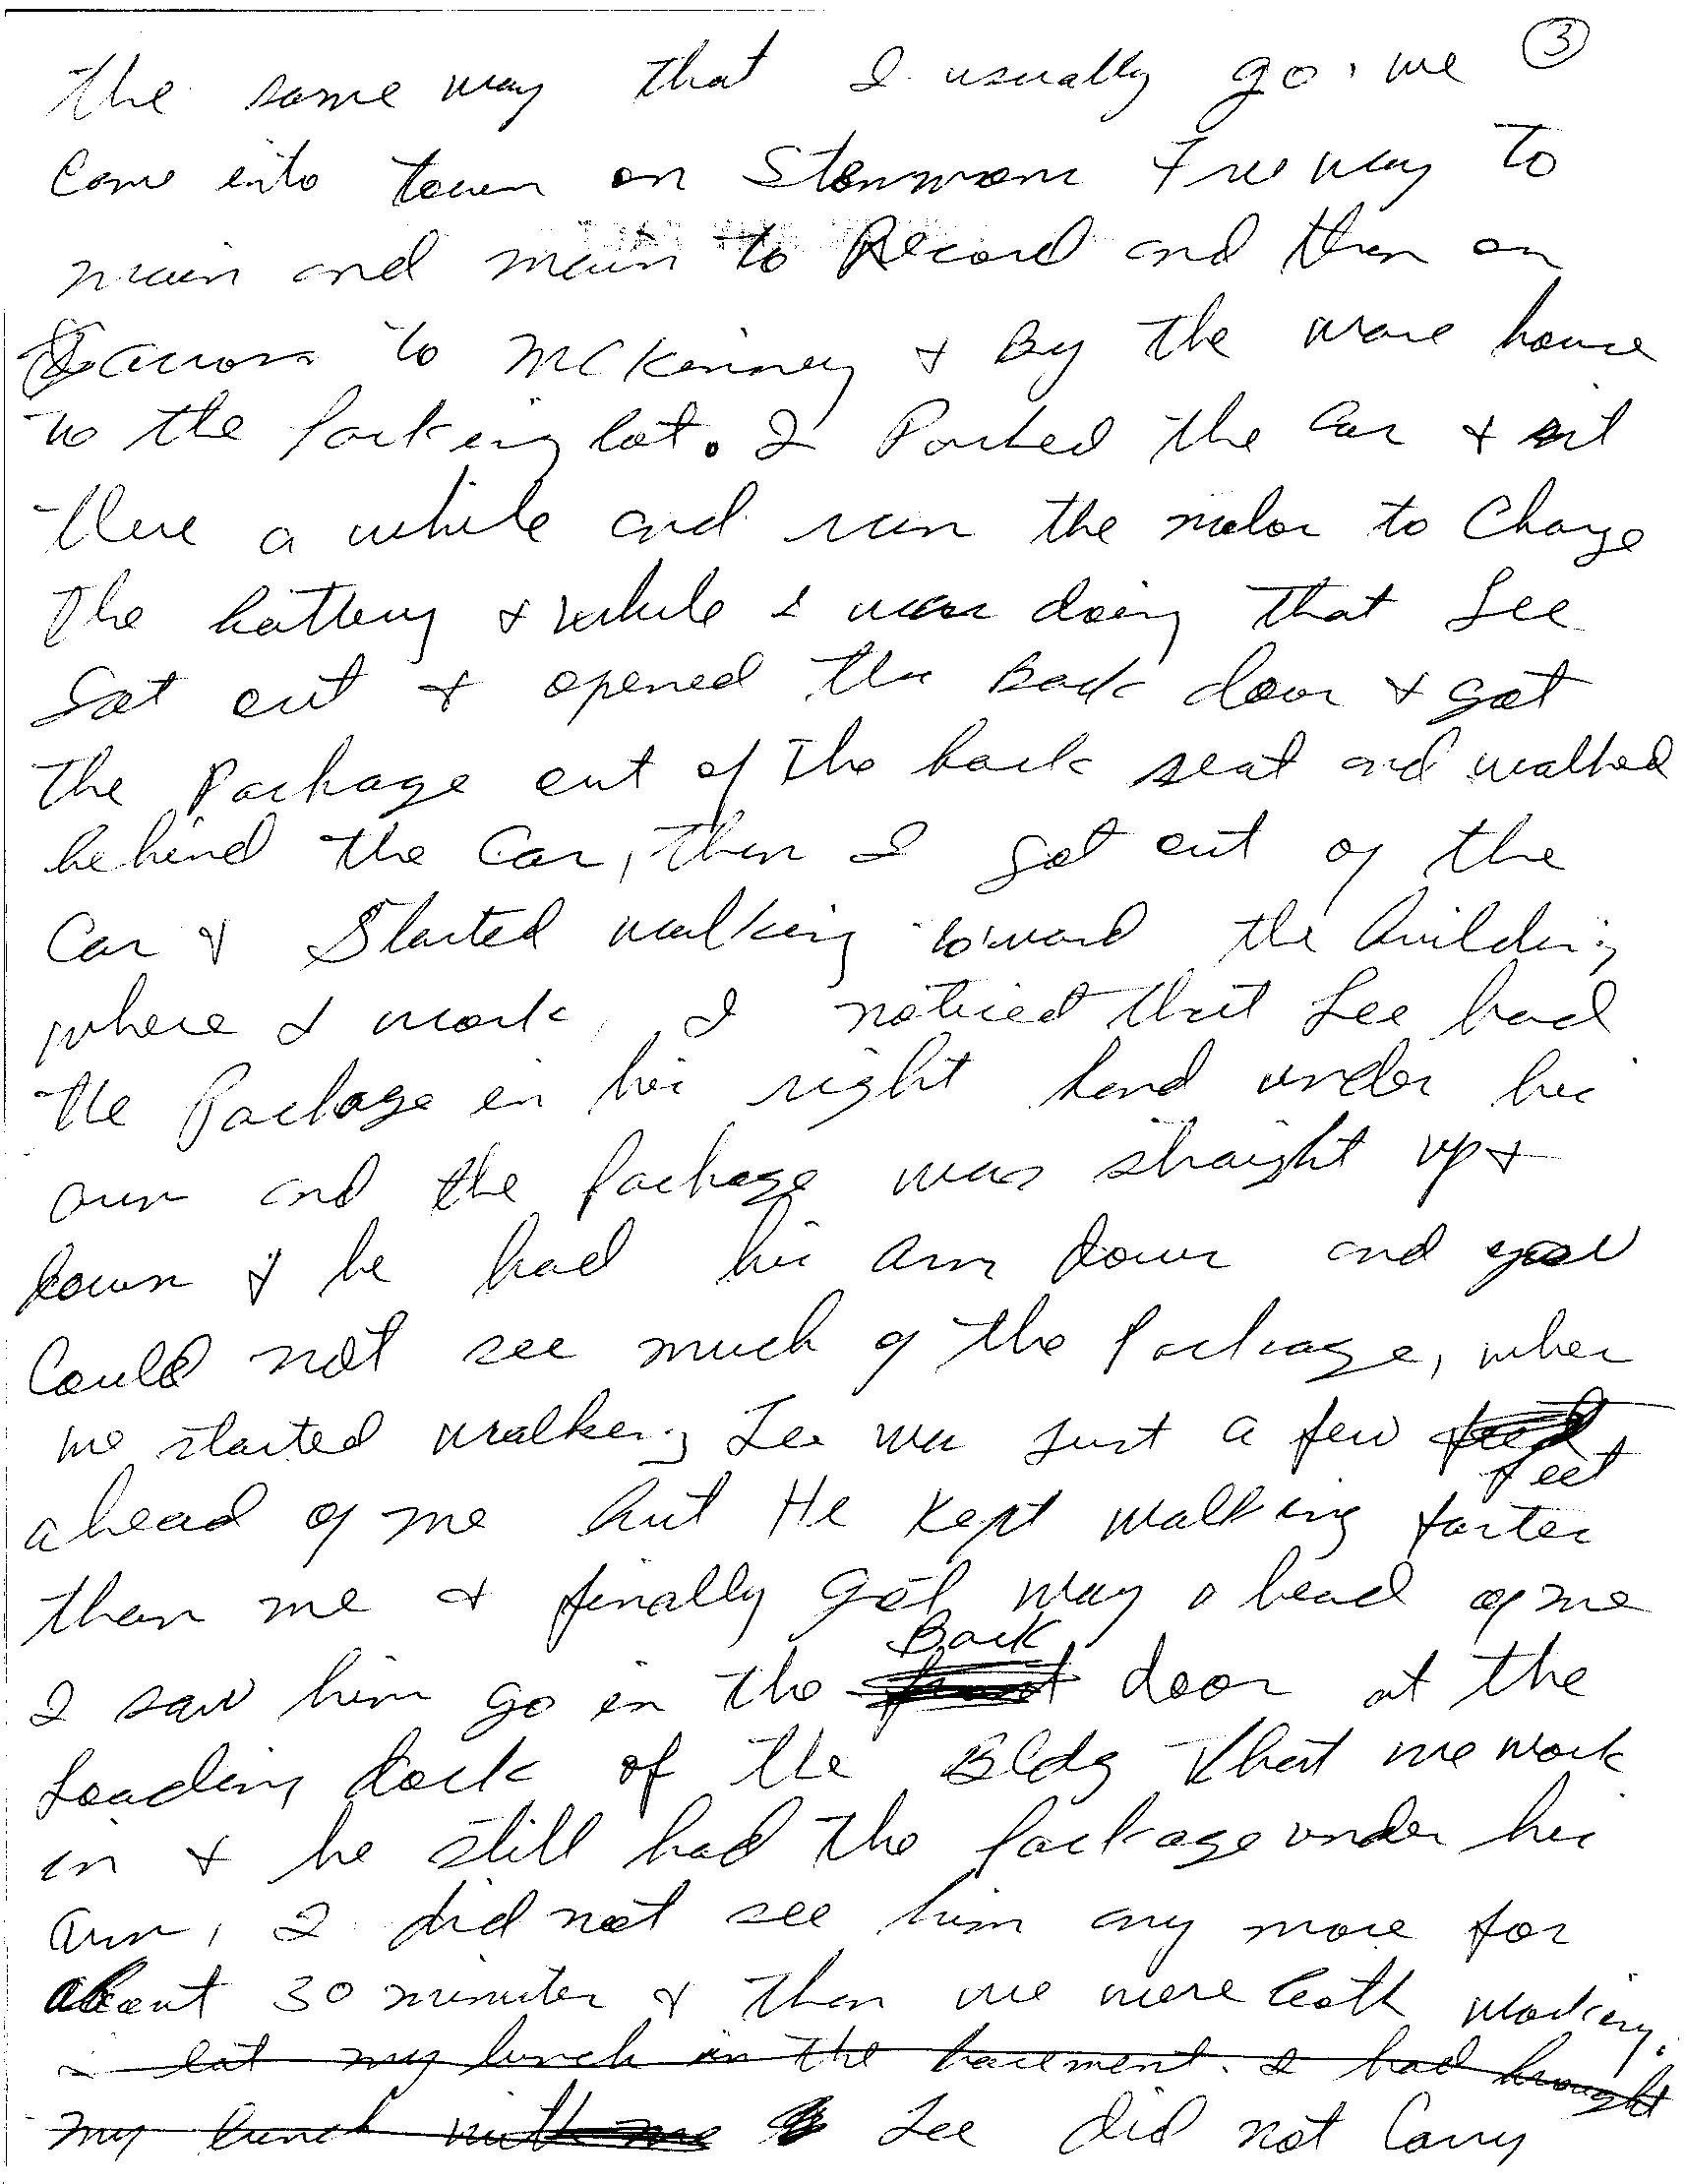 the same way that I usually go. we ③
come into town on Stemmons Freeway to
main and main to Record and then on
across to McKinney & By the ware house
to the Parking lot. I Parked the Car & sit
there a while and run the motor to Charge
the battery & while I was doing that Lee
Got out & opened the Back door & got
the Package out of the back seat and walked
behind the Car, then I got out of the
Car & Started walking toward the building
where I work, I noticed that Lee had
the Package in his right hand under his
arm and the Package was straight up &
down & he had his arm down and you
Could not see much of the Package, when
we started walking Lee was Just a few
feet
ahead of me but He Kept walking faster
than me & finally got way ahead of me
Back
I saw him go in the front door at the
Loading dock of the Bldg that we work
in & he still had the Package under his
arm, I did not see him any more for
about 30 minutes & then we were both working.
I eat my lunch in the basement. I had brought
my lunch with me Lee did not Carry